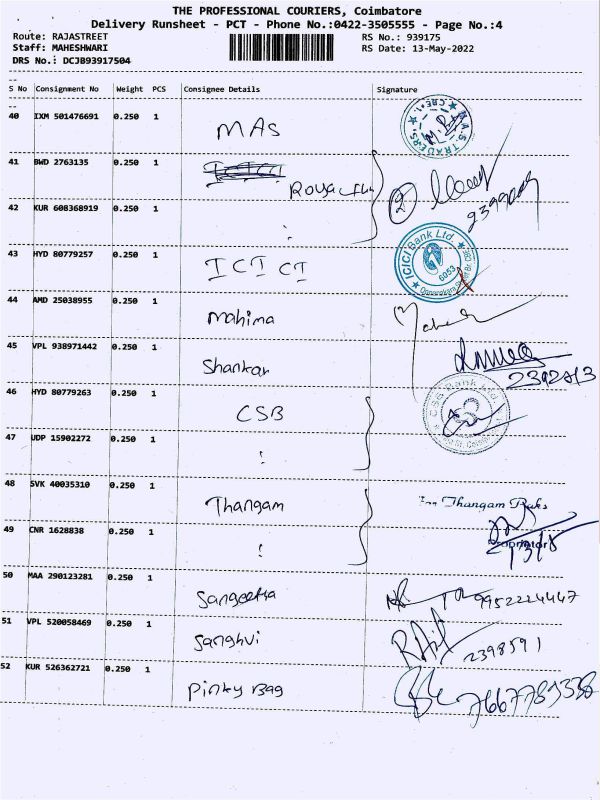 THE PROFESSIONAL COURIERS, Coimbatore
Delivery Runsheet - PCT - Phone No.:0422-3505555 - Page No.:4
Route: RAJASTREET RS No.: 939175
Staff: MAHESHWARI RS Date: 13-May-2022
DRS No.: DCJB93917504
S No Consignment No Weight PCS Consignee Details Signature
40 IXM 501476691 0.250 1 MAS
M.A.S. TRADERS, CBE-1.
41 BWD 2763135 0.250 1
42 KUR 608368919 0.250 1
2
43 HYD 80779257 0.250 1 ICICI
ICICI Bank Ltd. 6053
44 AMD 25038955 0.250 1 Mahima
45 VPL 938971442 0.250 1 Shankar
46 HYD 80779263 0.250 1 CSB
CSB Bank Ltd
47 UDP 15902272 0.250 1
48 SVK 40035310 0.250 1 Thangam
For Thangam
49 CNR 1628838 0.250 1
Proprietor
50 MAA 290123281 0.250 1 Sangeetha 9952224447
51 VPL 520058469 0.250 1 Sanghvi 2398591
52 KUR 526362721 0.250 1 Pinky Bag